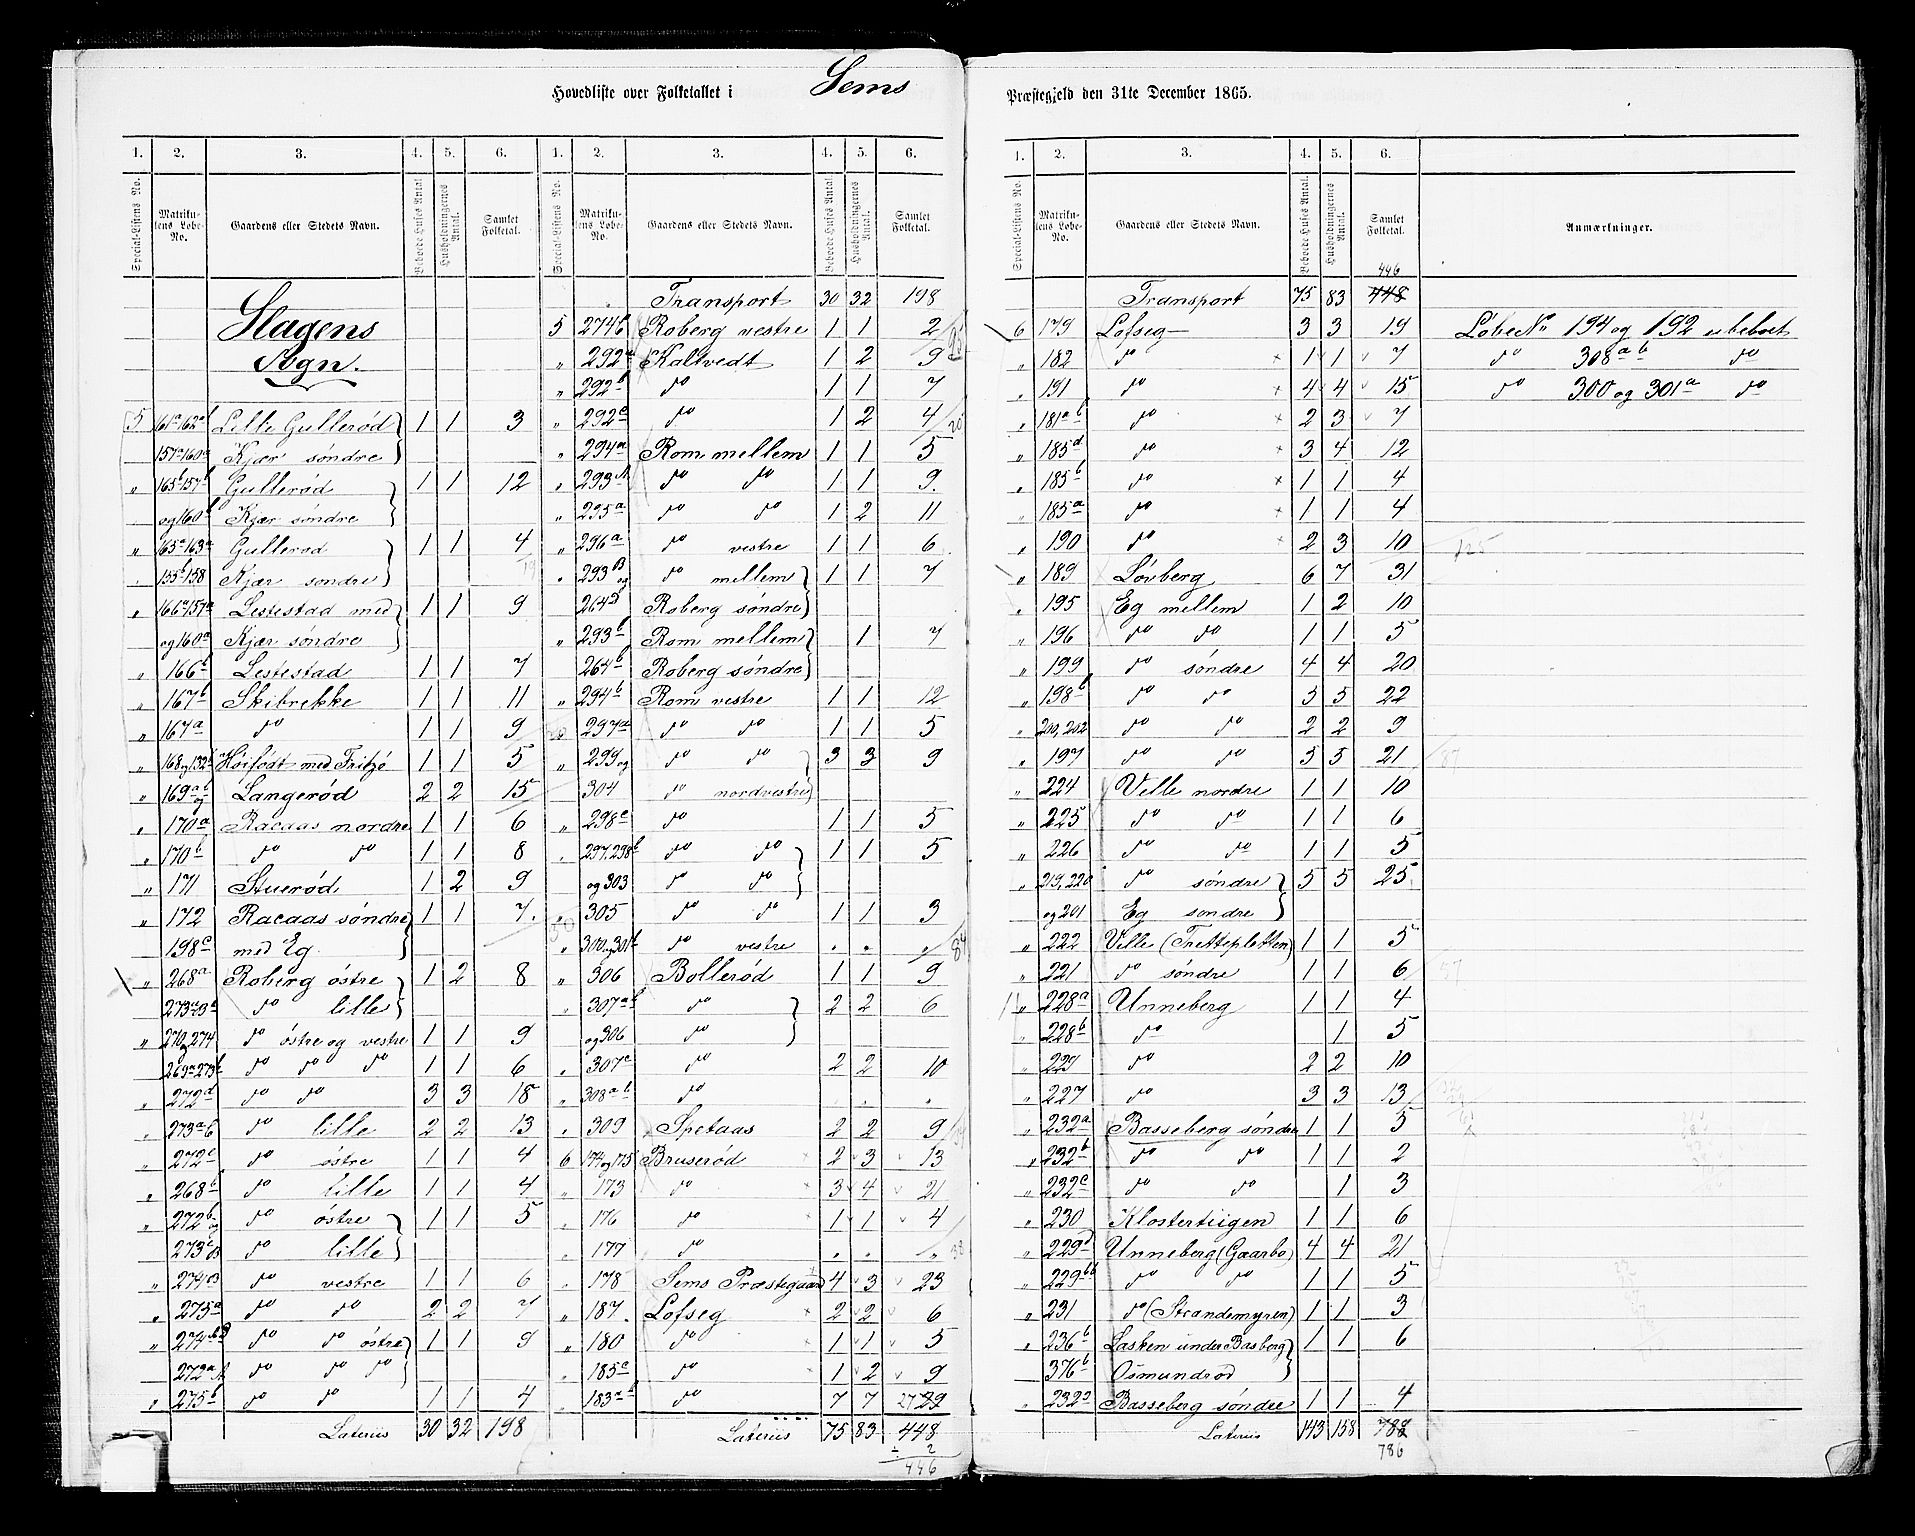 Hovedliste over Folketallet i Sems
1. 2. 3. 4. 5. 6. 1. 2. 3. 4. 5. 6.
Special-Listens No. Matrikulens Løbe-No. Gaardens eller Stedets Navn. Beboede Huses Antal Husholdningernes Antal. Samlet Folketal. Special-Listens No. Matrikulens Løbe-No. Gaardens eller Stedets Navn. Beboede Huses Antal. Husholdningernes Antal. Samlet Folketal.
Slagens
Sogn.
5 161a 162a Lille Gullerød 1 1 3
157a 160a Kjær søndre
" 165b 157b Gullerød 1 1 12
og 160b Kjær søndre
" 165a 163a Gullerød 1 1 4
155b 158 Kjær søndre
" 166a 157a Lestestad med 1 1 9
og 160a Kjær søndre
" 166b Lestestad 1 1 7
" 167b Skibrekke 1 1 11
" 167a do 1 1 9
" 168 og 132b Høifødt med Fritzø 1 1 5
" 169ab Langerød 2 2 15
" 170a Racaas nordre 1 1 6
" 170b do do 1 1 8
" 171 Stuerød 1 2 9
" 172 Racaas søndre 1 1 7.
198c med Eg.
" 268a Roberg østre 1 2 8
273a do lille
" 270 og 274 do østre og vestre 1 1 9
269a 273b do do do 1 1 6
" 272d do do 3 3 18
" 273ab do lille 2 2 13
" 272c do østre 1 1 4
" 268b do lille 1 1 4
" 272b og do østre 1 1 5
273c do lille
" 274 do vestre 1 1 6
" 275a do do 2 2 7
" 274 do do østre 1 1 9
272a do do do
" 275b do do 1 1 4
Lateriis 30 32 198
Transport 30 32 198
5 274b Roberg vestre 1 1 2
" 292a Kaltvedt 1 2 9
" 292b do 1 1 7
" 292c do 1 2 4
" 294a Rom mellem 1 1 5
" 293A do do 1 1 9.
" 295a do do 1 2 11
" 296a do vestre 1 1 6
" 293B og do mellem 1 1 7
264d Roberg søndre
" 293b Rom mellem 1 7
264b Roberg søndre
" 294b Rom vestre 1 1 12
" 297a do do 1 1 5
" 299 og do do 3 3 9
304 do nordvestre
" 298c do 1 1 5
" 297, 298b do do 1 1 5
og 303 do do
" 305 do do 1 1 3
" 300, 301b do vestre . . "
" 306 Bollerød 1 1 9
" 307ab do 2 2 6
og 306 do
" 307c do 2 2 10
" 308ab do . . "
" 309 Spetaas 2 2 9
6 174 og 175 Bruserød 2 3 13
" 173 do 3 4 21
" 176 do 1 1 4
" 177 do . . "
" 178 Sems Præstegaard 4 3 23
" 187 Lofseg 2 2 6
" 180 do 1 1 5
" 185c do 1 2 9
" 183ab do 7 7 27 29
Lateriis 75 83 448
÷ 2
446
Præstegjeld den 31te December 1865.
1. 2. 3. 4. 5. 6.
Special-Listens No. Matrikulens Løbe-No. Gaardens eller Stedets Navn. Beboede Huses Antal. Husholdningernes Antal. Samlet Folketal. Anmærkninger.
446
Transport 75 83 448
6 179 Lofseg 3 3 19 Løbe No 194 og 192 ubeboet
" 182 do 1 1 7 do 308ab do
" 191 do 4 4 15 do 300 og 301a do
" 181ab do 2 3 7
" 185d do 3 4 12
" 185b do 1 1 4
" 185a do 1 1 4
" 190 do 2 3 10 125
" 189 Løvberg 6 7 31
" 195 Eg mellem 1 2 10
" 196 do do 1 1 5
" 199 do søndre 4 4 20
" 198b do do 5 5 22
" 200, 202 do do 2 2 9
" 197 do do 5 5 21
" 224 Velle nordre 1 1 10
" 225 do do 1 1 6
" 226 do do 1 1 5
" 219, 220 do søndre 5 5 25
og 201 Eg søndre
" 222 Velle (Tretteplatten) 1 1 5
" 221 do søndre 1 1 6
" 228a Unneberg 1 1 4
" 228b do 1 5
" 229 do 2 2 10
" 227 do 3 3 13
" 232a Basseberg søndre 1 1 5
" 232b do do 1 1 2
" 232c do do 1 3
" 230 Klostertiigen 1 1 6
" 229d Unneberg (Gaarbo) 4 4 21
" 229bb do do 1 1 5
" 231 do (Strandemyren) 1 1 3
" 236b Lasken under Basberg 1 1 6
376b Osmundrød
" 232 Basseberg søndre 1 1 4
Lateriis 143 158 788
786